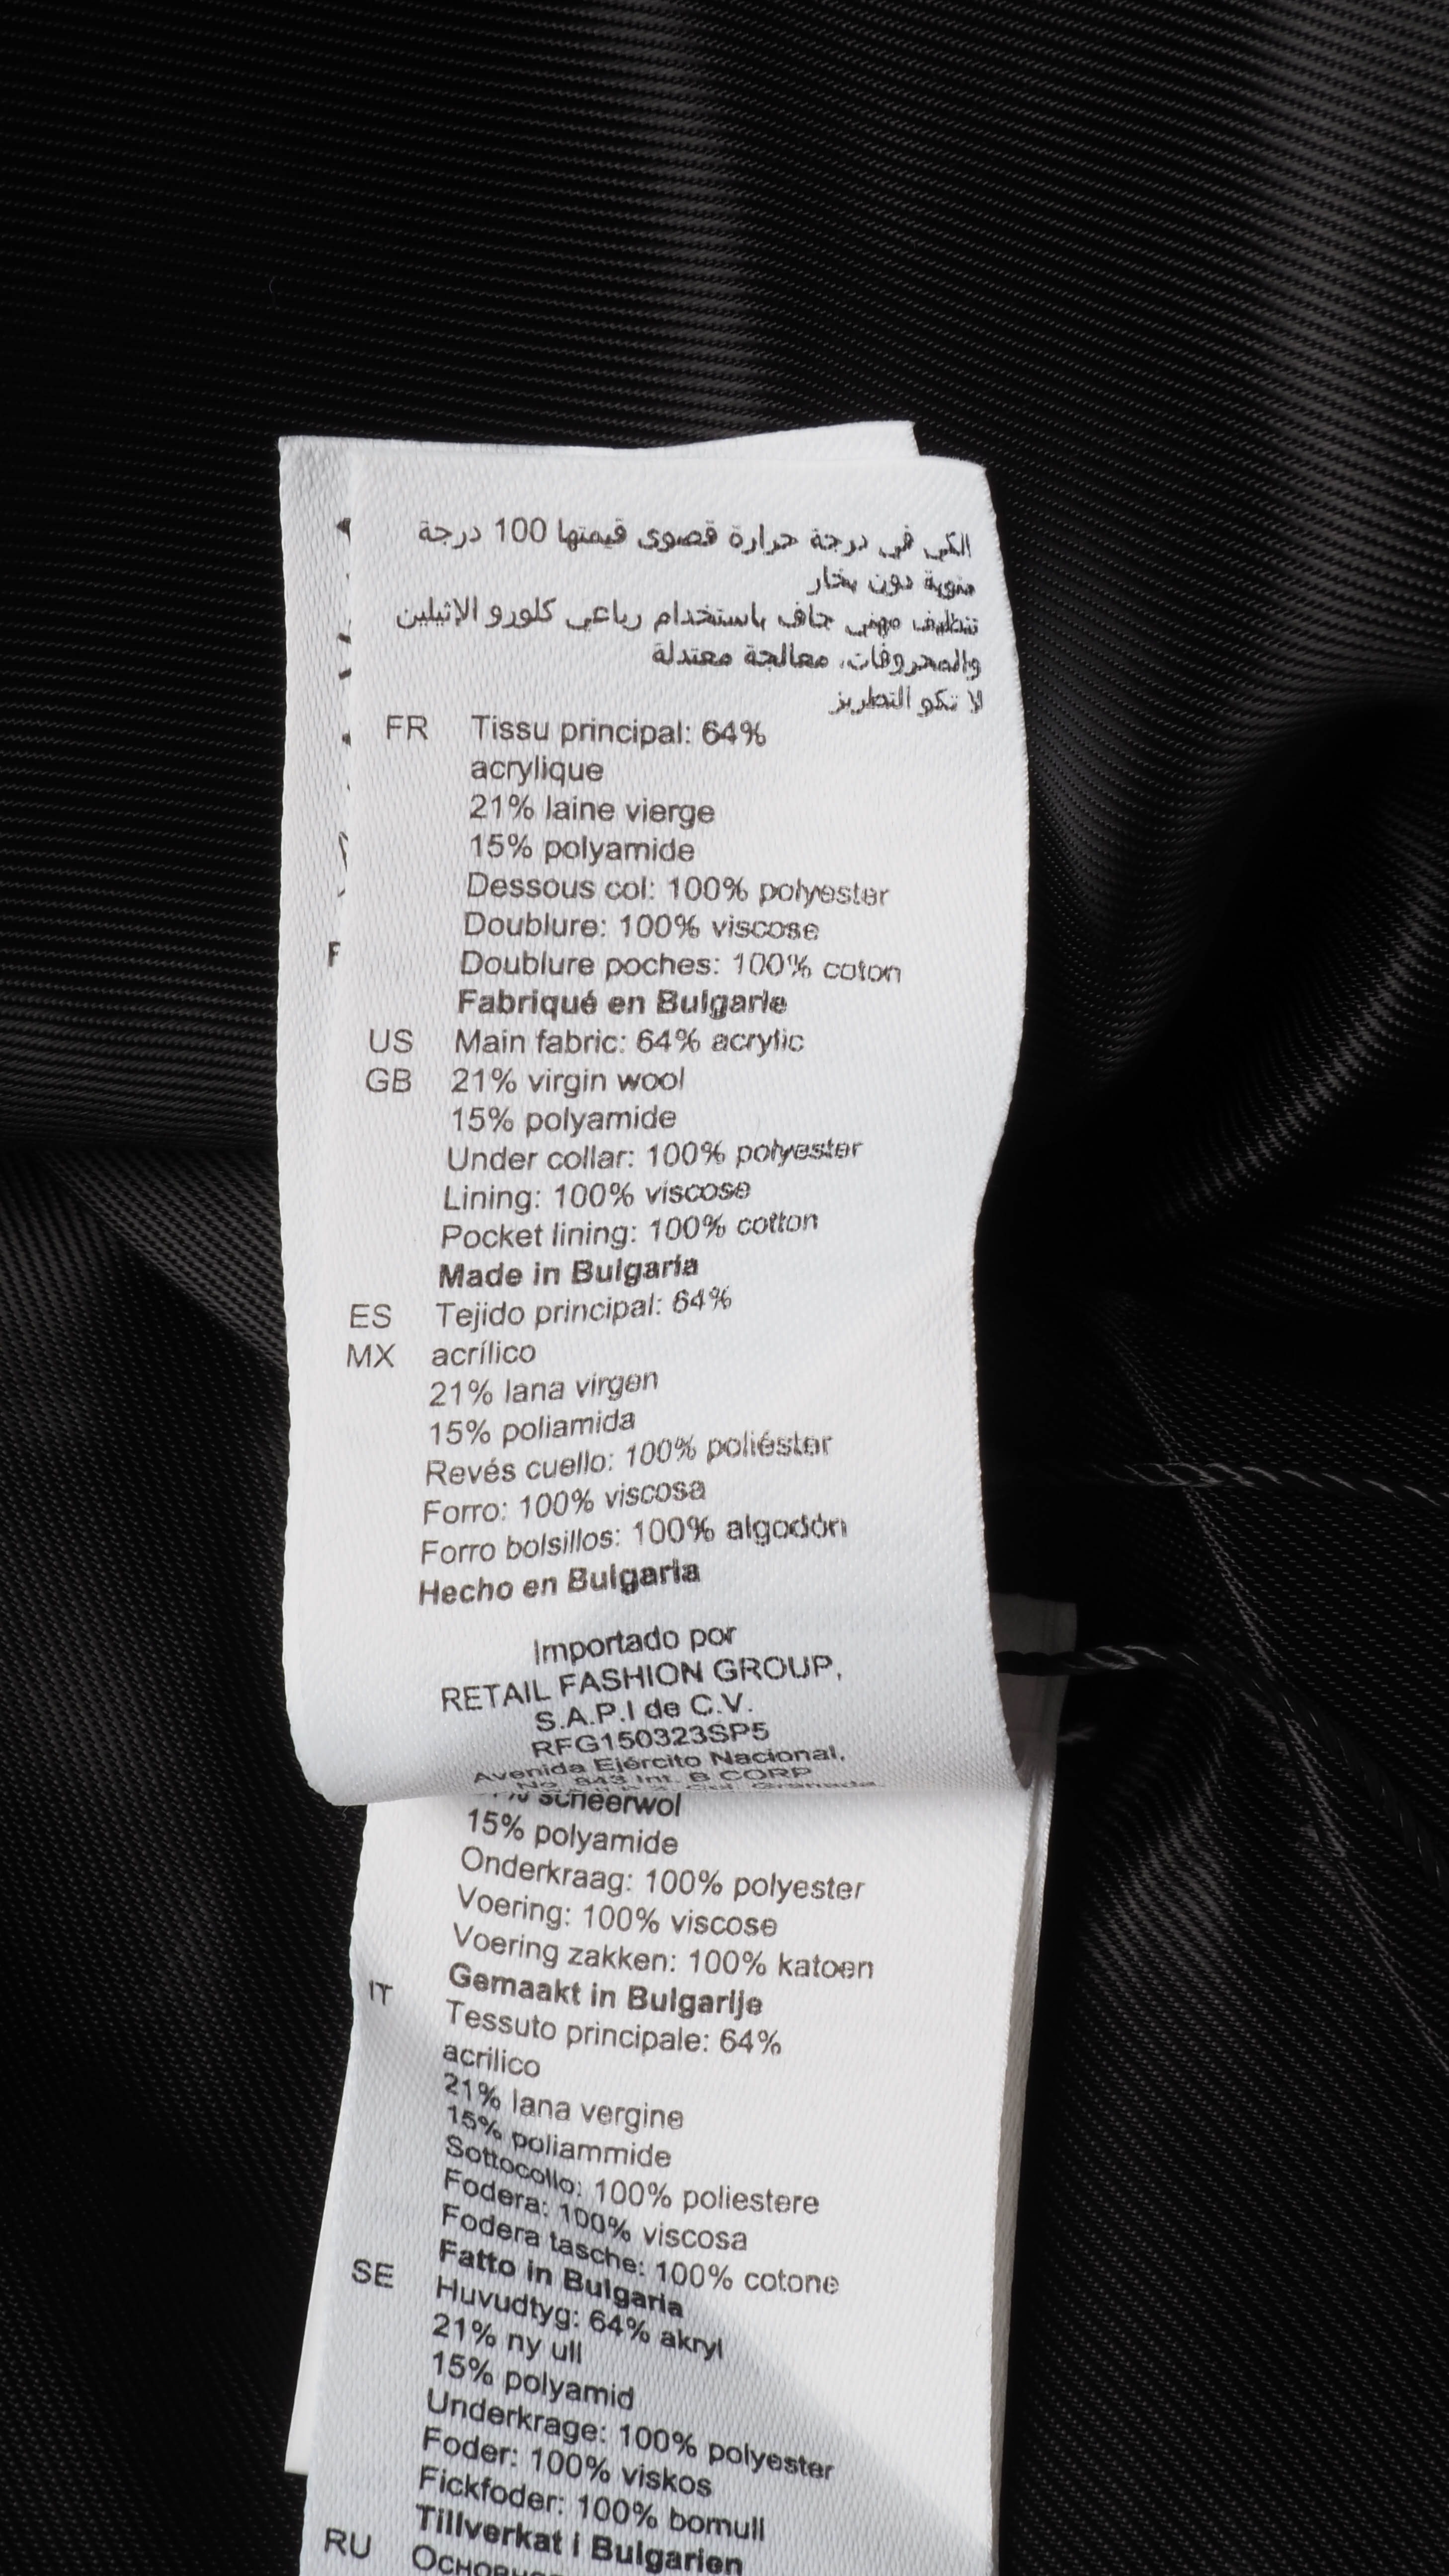 الكي في درجة حرارة قصوى قيمتها 100 درجة
مئوية دون بخار
تنظيف مهني جاف باستخدام رباعي كلورو الإثيلين
والمحروقات، معالجة معتدلة
لا تكو التطريز
FR Tissu principal: 64%
acrylique
21% laine vierge
15% polyamide
Dessous col: 100% polyester
Doublure: 100% viscose
Doublure poches: 100% coton
Fabriqué en Bulgarie
US Main fabric: 64% acrylic
GB 21% virgin wool
15% polyamide
Under collar: 100% polyester
Lining: 100% viscose
Pocket lining: 100% cotton
Made in Bulgaria
ES Tejido principal: 64%
MX acrílico
21% lana virgen
15% poliamida
Revés cuello: 100% poliéster
Forro: 100% viscosa
Forro bolsillos: 100% algodón
Hecho en Bulgaria
Importado por
RETAIL FASHION GROUP,
S.A.P.I de C.V.
RFG150323SP5
Avenida Ejército Nacional,
No. 843 Int. B CORP
scheerwol
15% polyamide
Onderkraag: 100% polyester
Voering: 100% viscose
Voering zakken: 100% katoen
Gemaakt in Bulgarije
IT Tessuto principale: 64%
acrilico
21% lana vergine
15% poliammide
Sottocollo: 100% poliestere
Fodera: 100% viscosa
Fodera tasche: 100% cotone
Fatto in Bulgaria
SE Huvudtyg: 64% akryl
21% ny ull
15% polyamid
Underkrage: 100% polyester
Foder: 100% viskos
Fickfoder: 100% bomull
Tillverkat i Bulgarien
RU